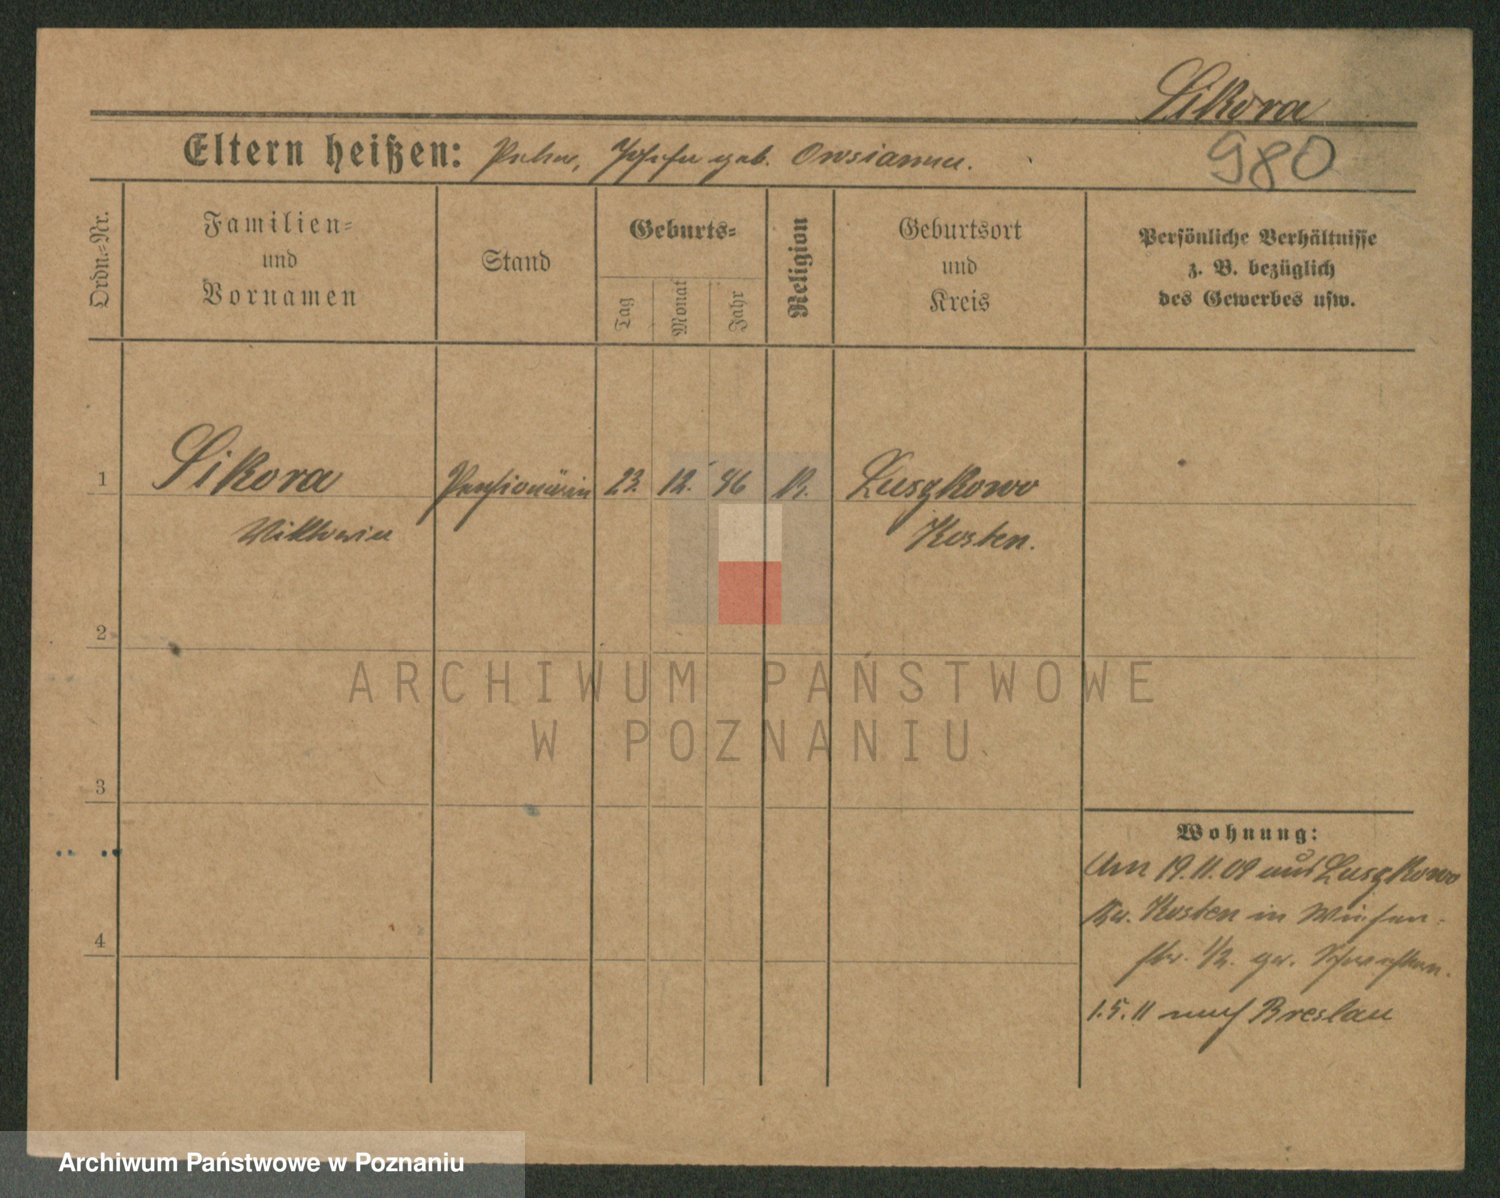 Sikora
980
Eltern heißen: Peter, Josefa geb. Owsianna.
Ordn.-Nr.
Familien-
und
Vornamen
Stand
Geburts-
Tag
Monat
Jahr
Religion
Geburtsort
und
Kreis
Persönliche Verhältnisse
z. B. bezüglich
des Gewerbes usw.
1
Sikora
Pensionärin
23.
12.
96
K.
Luszkowo
Viktoria
Kosten.
2
ARCHIWUM PAŃSTWOWE
W POZNANIU
3
Wohnung:
Am 19.11.09 aus Luszkowo
Kr. Kosten in Wiesen-
str. 1/2. gr. Schwestern.
4
1.5.11 nach Breslau
Archiwum Państwowe w Poznaniu